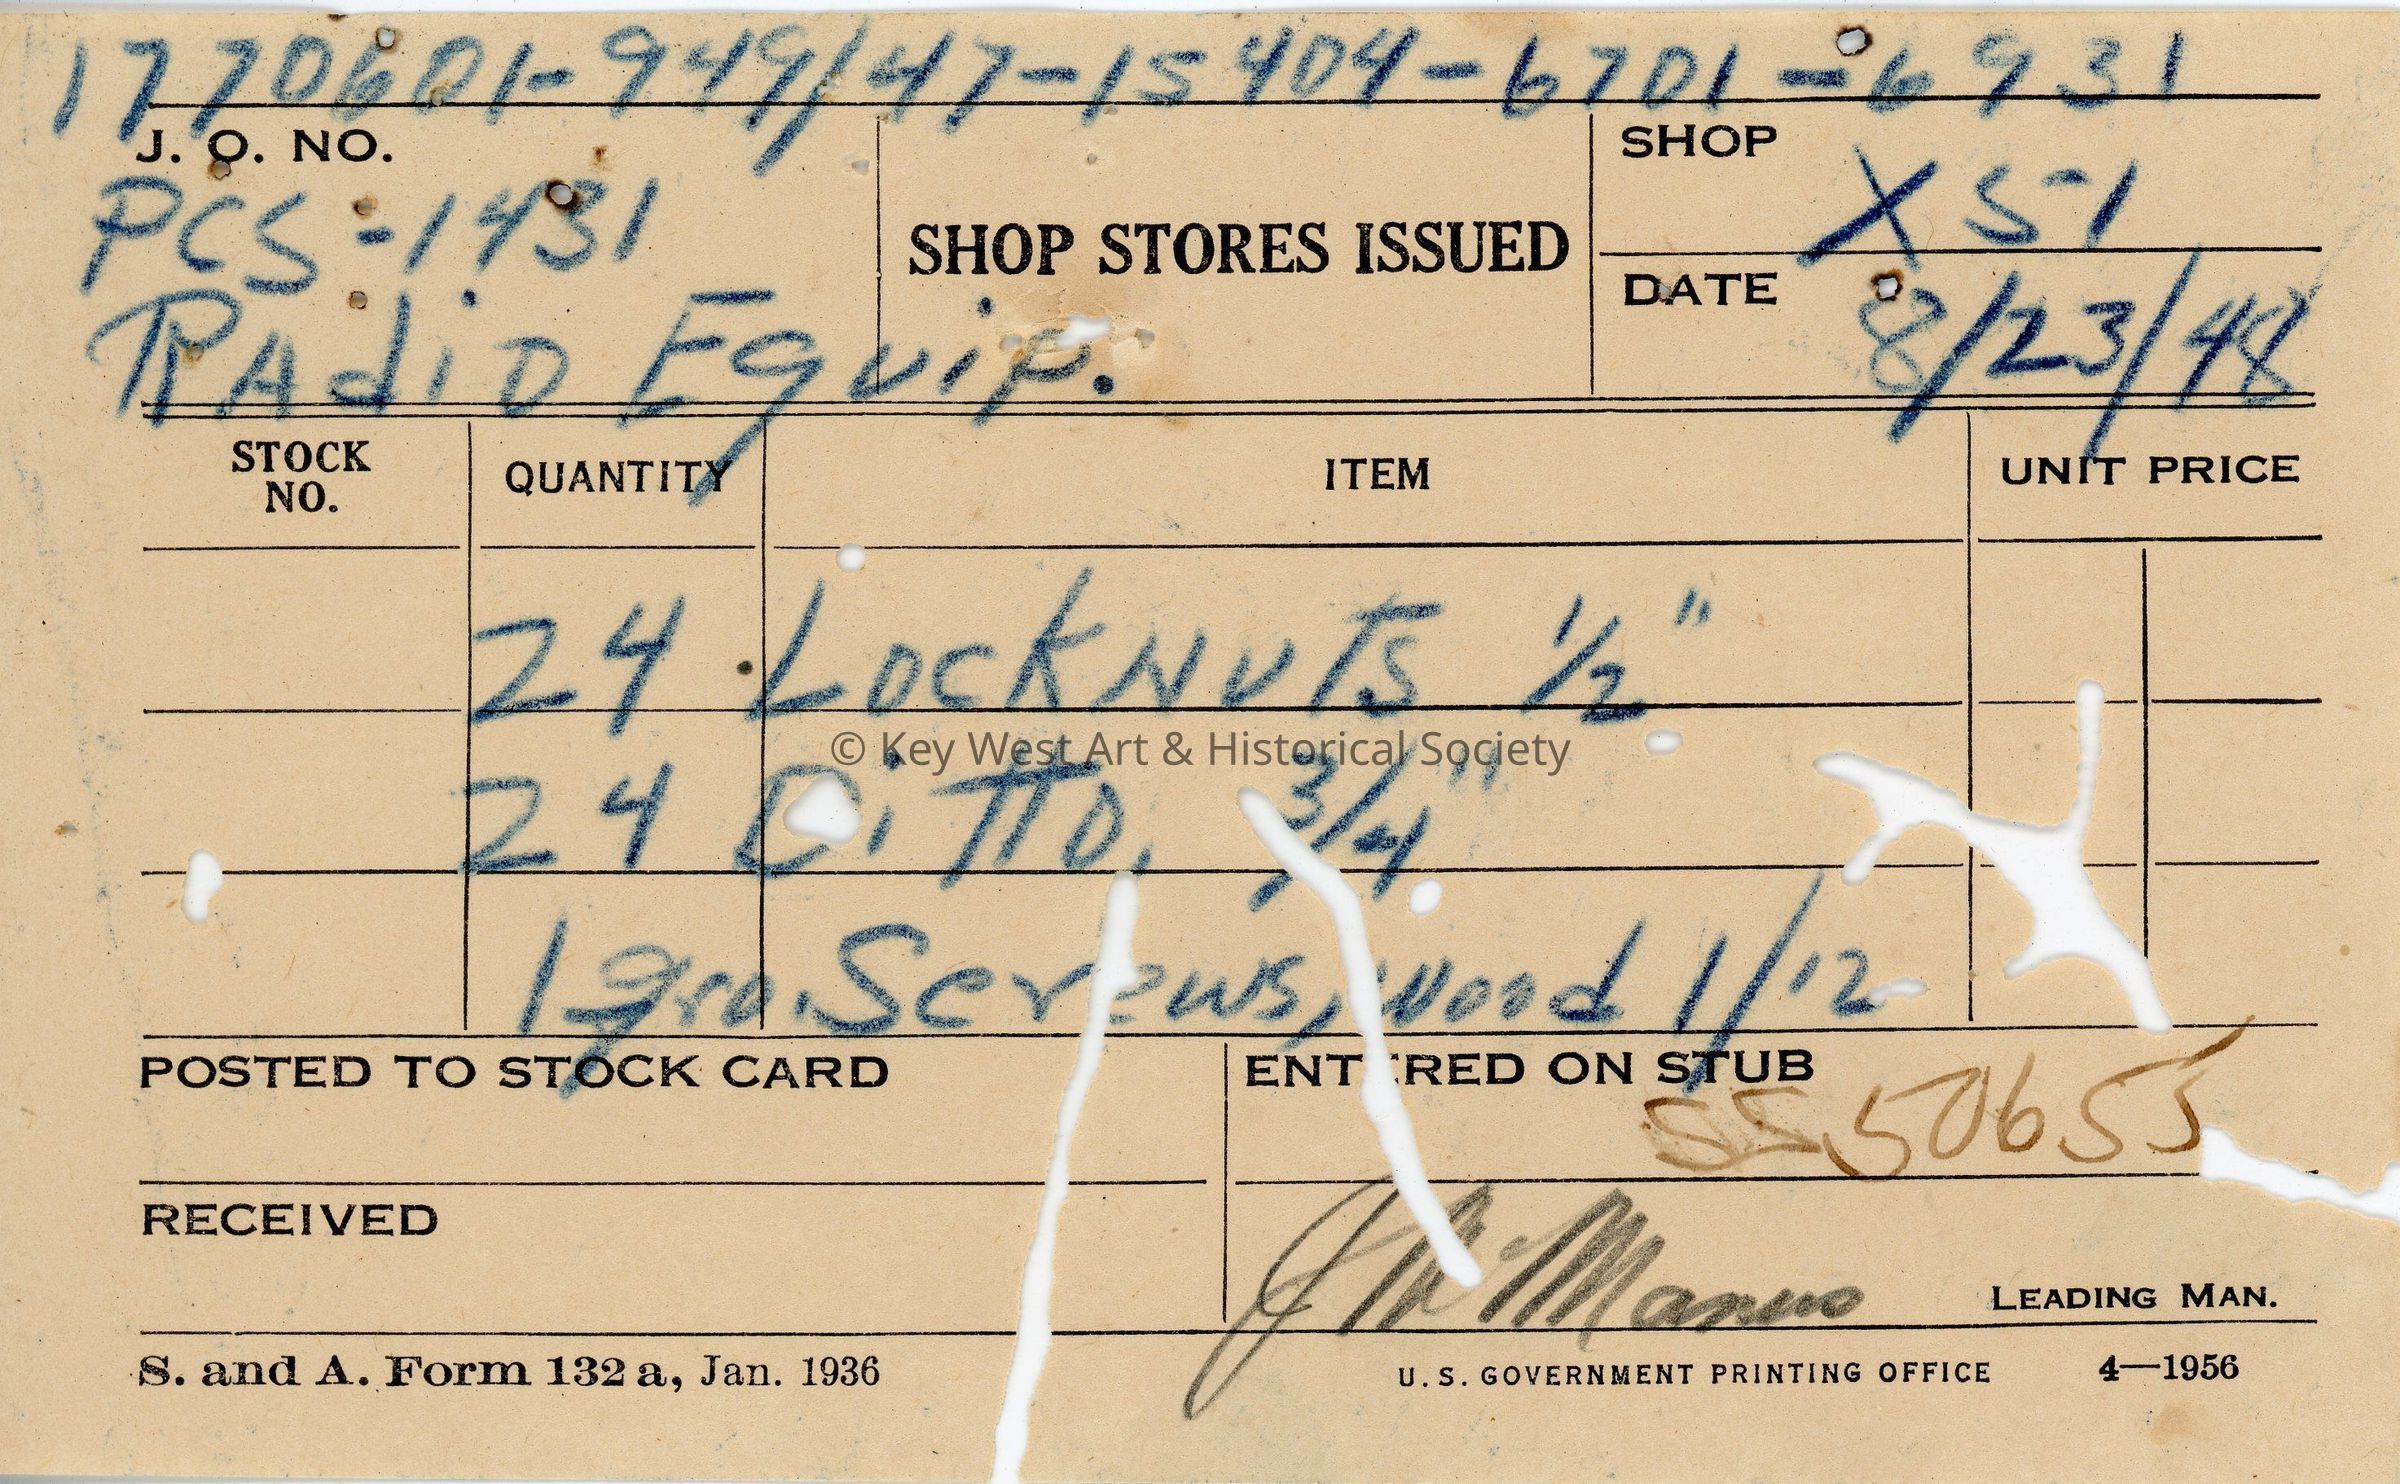 1770601-949/47-15404-6701-6931
J. O. NO.
PCS-1431
Radio Equip.
SHOP STORES ISSUED
SHOP
XS-1
DATE
8/23/48
STOCK NO.
QUANTITY
ITEM
UNIT PRICE
24 Locknuts 1/2"
© Key West Art & Historical Society
24 Ditto, 3/4"
1 gro. Screws, wood 1/12
POSTED TO STOCK CARD
ENTERED ON STUB
SS50655
RECEIVED
LEADING MAN.
S. and A. Form 132 a, Jan. 1936
U. S. GOVERNMENT PRINTING OFFICE 4—1956